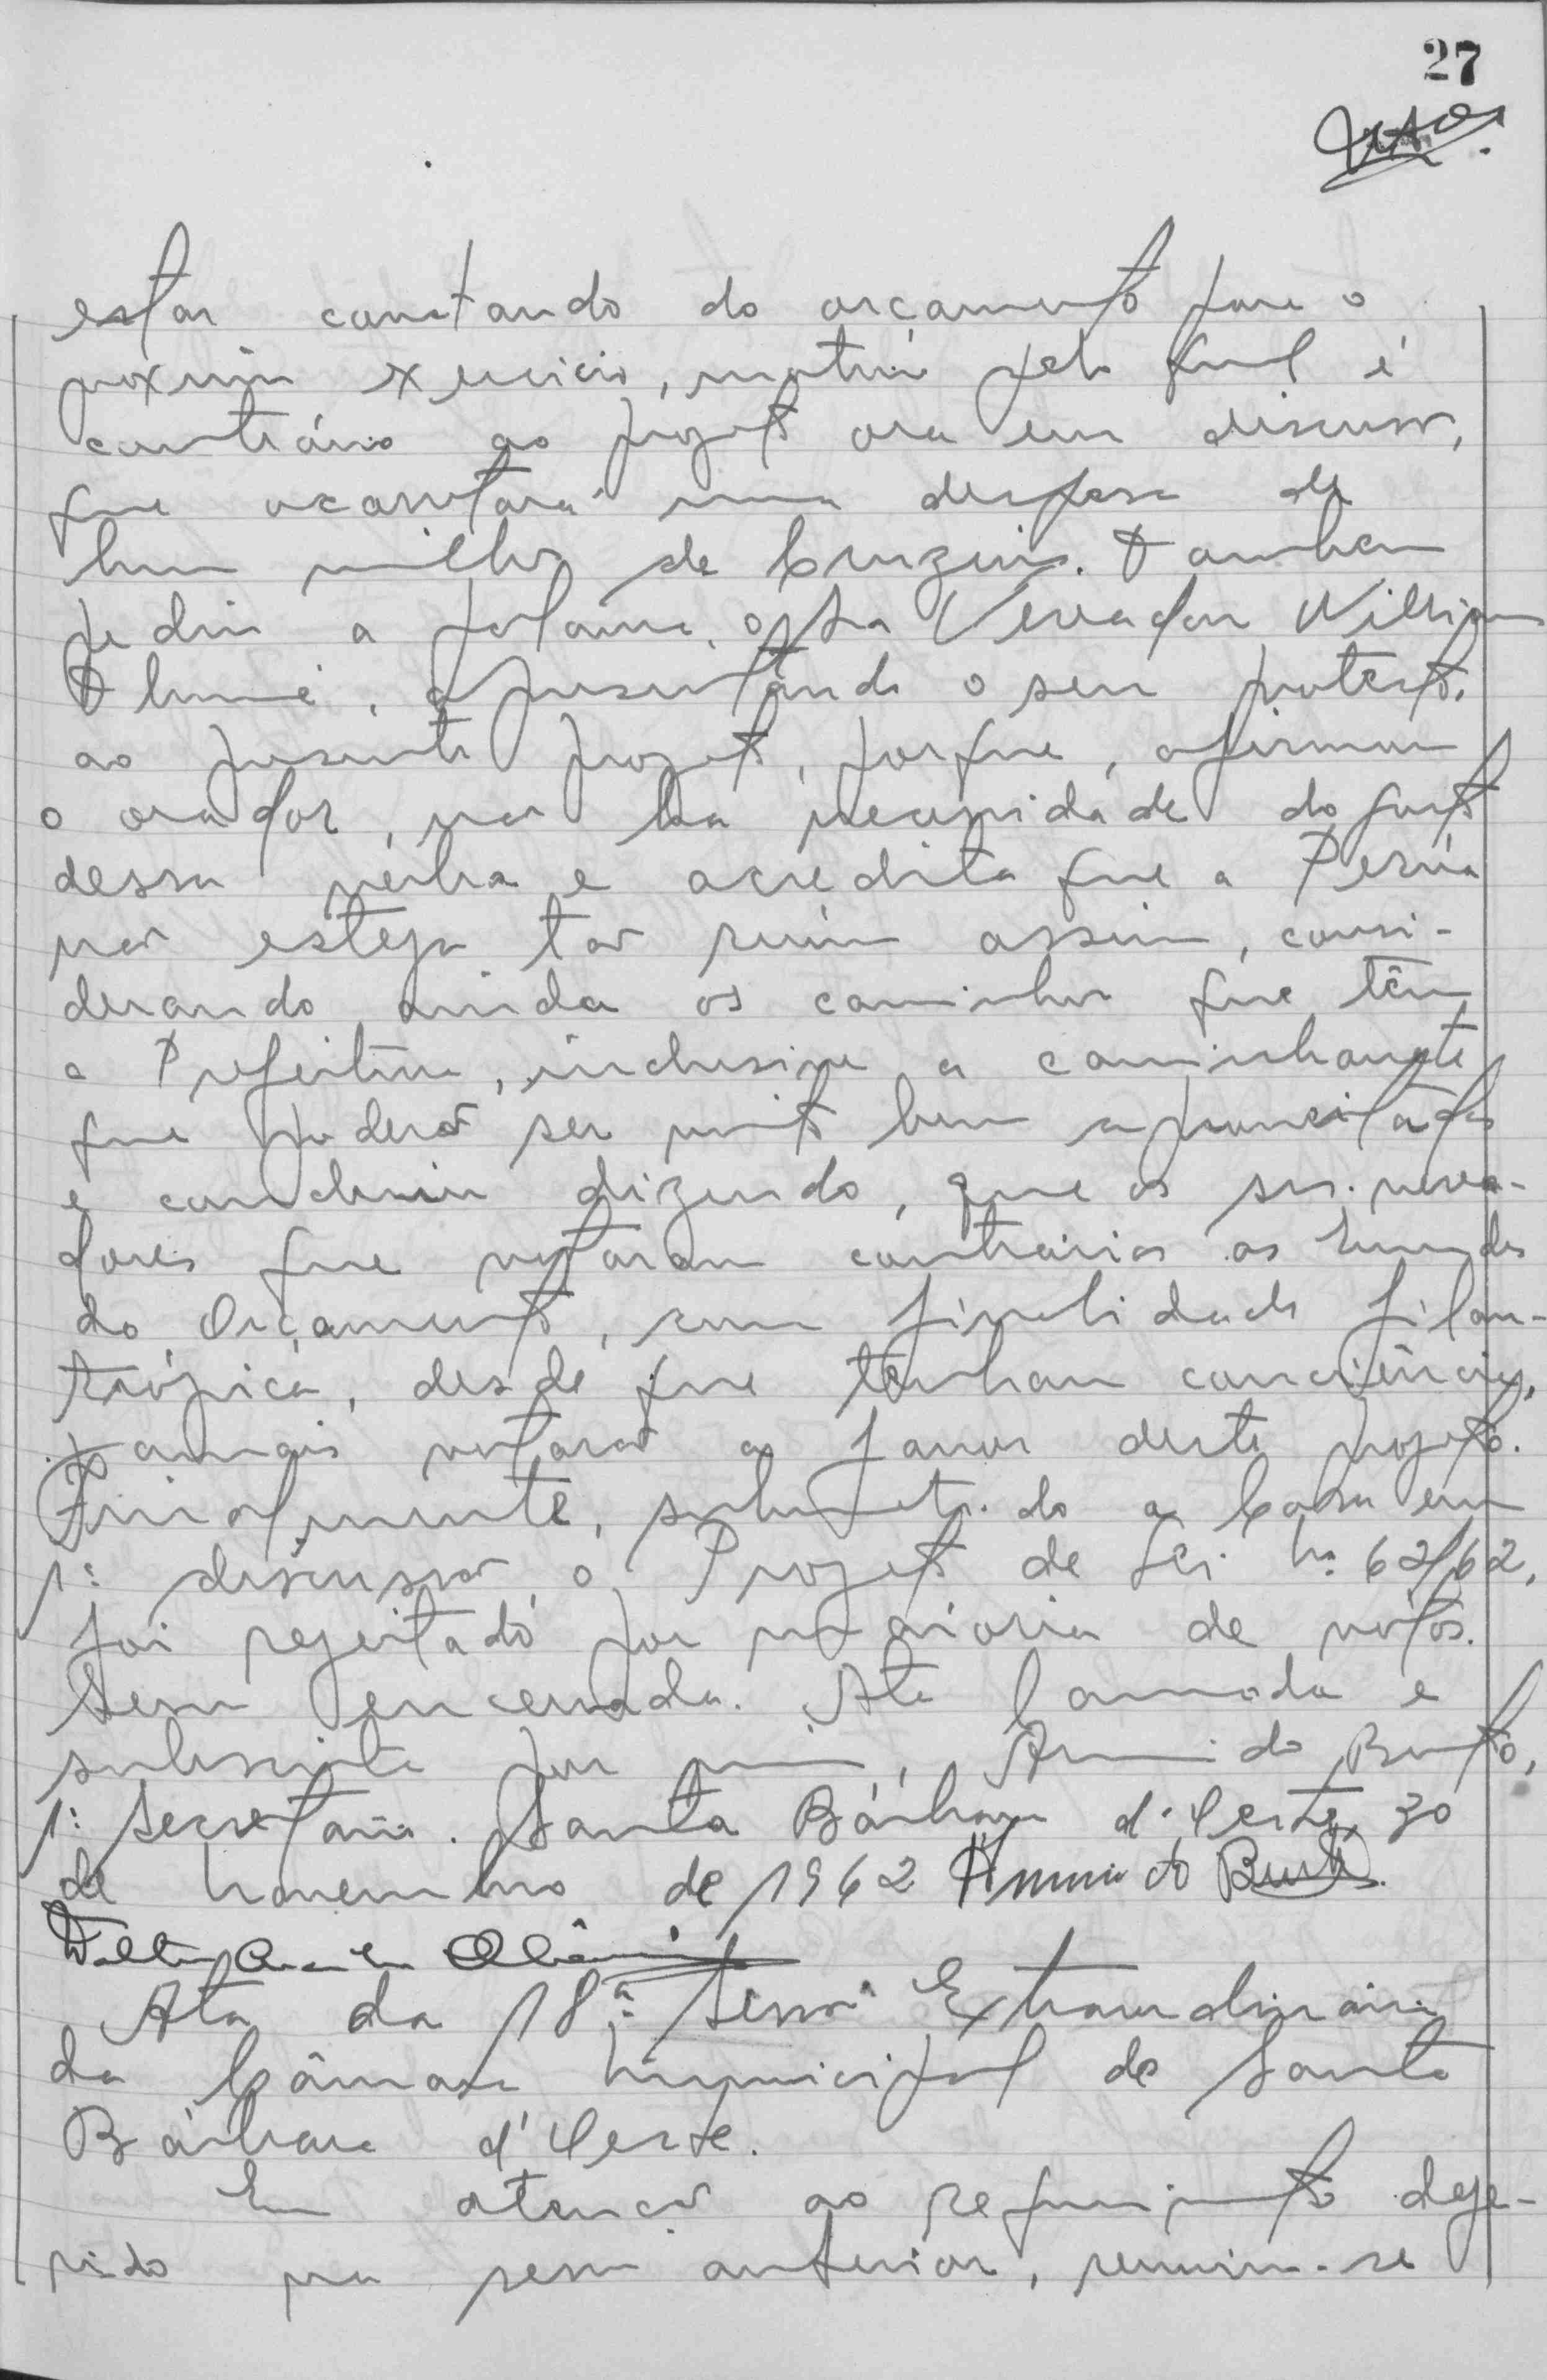 27
estar constando do orçamento para o
próximo exercicio, motivo pelo qual é
contrário ao projeto ora em discussão,
que acarretará uma despesa de
hum milhão de Cruzeiros. Tambem
pediu a palavra, o sr. Vereador William
, apresentando o seu protesto,
ao presente projeto, porque, afirmou
o orador, não ha necessidade do gasto
dessa verba e acredita que a Perúa
não esteja tão ruim assim, consi-
derando ainda os caminhões que têm
a Prefeitura, inclusive a caminhonete
que poderá ser muito bem aproveitada
e concluiu dizendo, que os srs. verea-
dores que votaram contrários as Emendas
do Orçamento, com finalidade filan-
trópica, desde que tenham conciência,
jamais votarão a favor deste projeto.
Finalmente, submetido a Casa em
1ª discussão o Projeto de Lei nº 62/62,
foi rejeitado por maioria de votos.
Sessão encerrada. Ata lavrada e
subscrita por mim, Armindo Bueto,
1º Secretario. Santa Bárbara d'Oeste, 30
de novembro de 1962
Ata da 18ª Sessão Extraordinária
da Câmara Municipal de Santa
Bárbara d'Oeste.
Em atenção ao requerimento defe-
rido na sessão anterior, reuniu-se